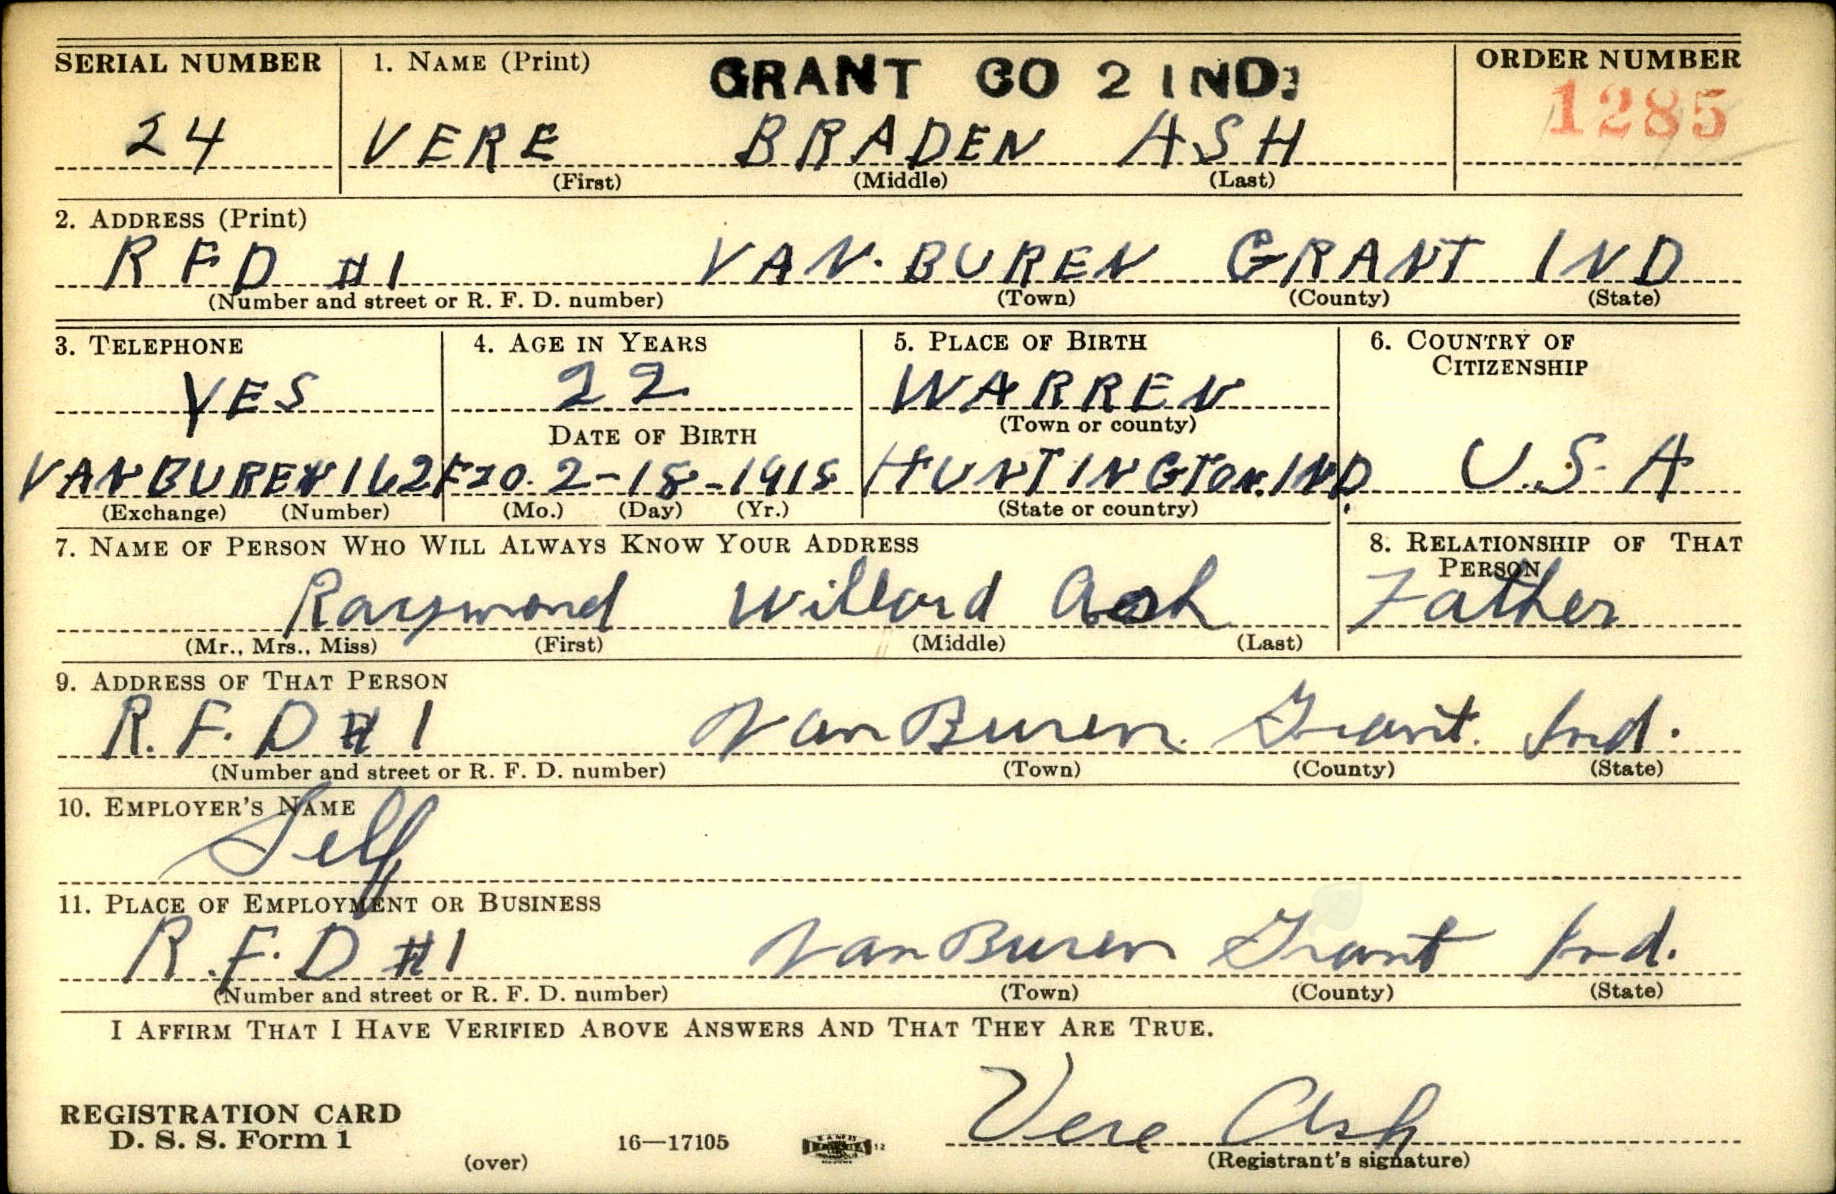 SERIAL NUMBER 1. NAME (Print) GRANT CO 2 IND. ORDER NUMBER
1285
24 VERE BRADEN ASH
(First) (Middle) (Last)
2. ADDRESS (Print)
R F D #1 VAN. BUREN GRANT IND
(Number and street or R. F. D. number) (Town) (County) (State)
3. TELEPHONE 4. AGE IN YEARS 5. PLACE OF BIRTH 6. COUNTRY OF
CITIZENSHIP
YES 22 WARREN
(Town or county)
DATE OF BIRTH
VAN BUREN 162 F20. 2-18-1918 HUNTINGTON. IND. U.S.A
(Exchange) (Number) (Mo.) (Day) (Yr.) (State or country)
7. NAME OF PERSON WHO WILL ALWAYS KNOW YOUR ADDRESS 8. RELATIONSHIP OF THAT
PERSON
Raymond Willard Ash Father
(Mr., Mrs., Miss) (First) (Middle) (Last)
9. ADDRESS OF THAT PERSON
R. F. D # 1 Van Buren. Grant. Ind.
(Number and street or R. F. D. number) (Town) (County) (State)
10. EMPLOYER'S NAME
Self
11. PLACE OF EMPLOYMENT OR BUSINESS
R. F. D #1 Van Buren Grant Ind.
(Number and street or R. F. D. number) (Town) (County) (State)
I AFFIRM THAT I HAVE VERIFIED ABOVE ANSWERS AND THAT THEY ARE TRUE.
REGISTRATION CARD
D. S. S. Form 1 16—17105 12 Vere Ash
(over) (Registrant's signature)